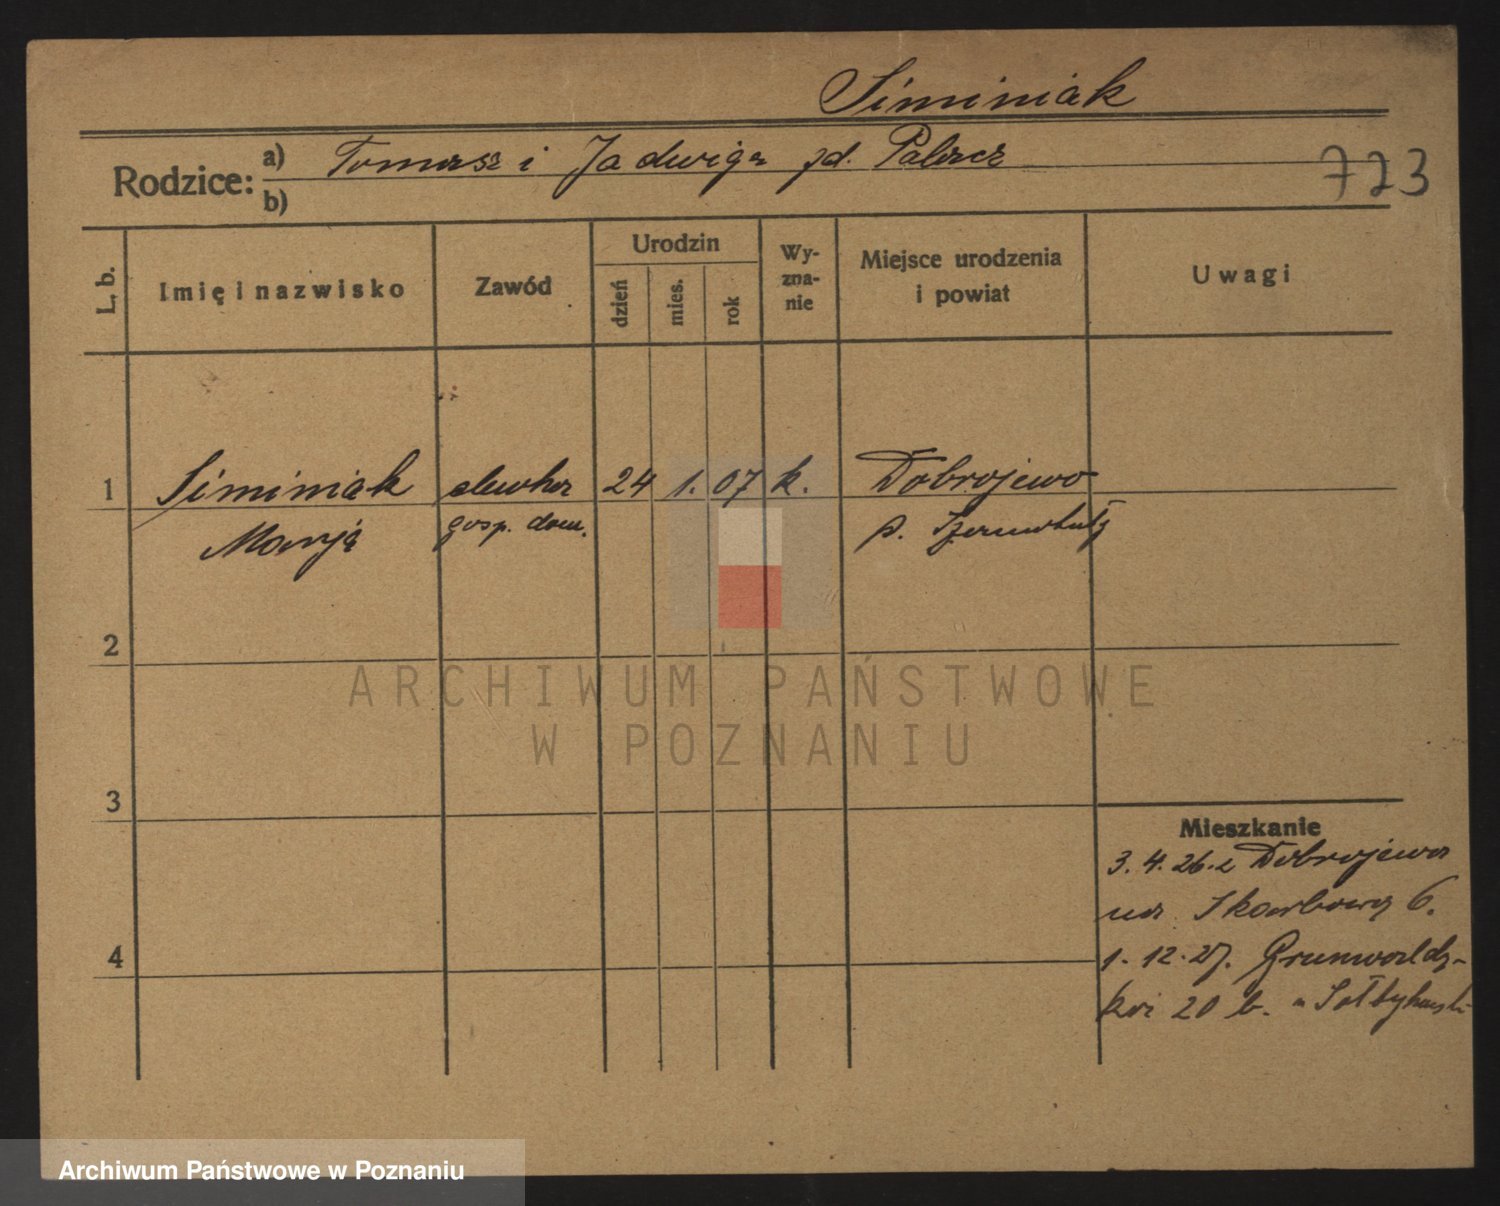 Siminiak
Rodzice: a) Tomasz i Jadwiga zd. Palacz
b)
723
L. b.
Imię i nazwisko
Zawód
Urodzin
dzień
mies.
rok
Wy-
zna-
nie
Miejsce urodzenia
i powiat
Uwagi
1 Siminiak 24 1. 07 k. Dobrojewo
Marja gosp. dom. p.
2
3
4
Mieszkanie
3. 4. 26. z Dobrojewa
na Skarbowa 6.
1. 12. 27. Grunwaldz-
ka 20 b.
ARCHIWUM PAŃSTWOWE
W POZNANIU
Archiwum Państwowe w Poznaniu